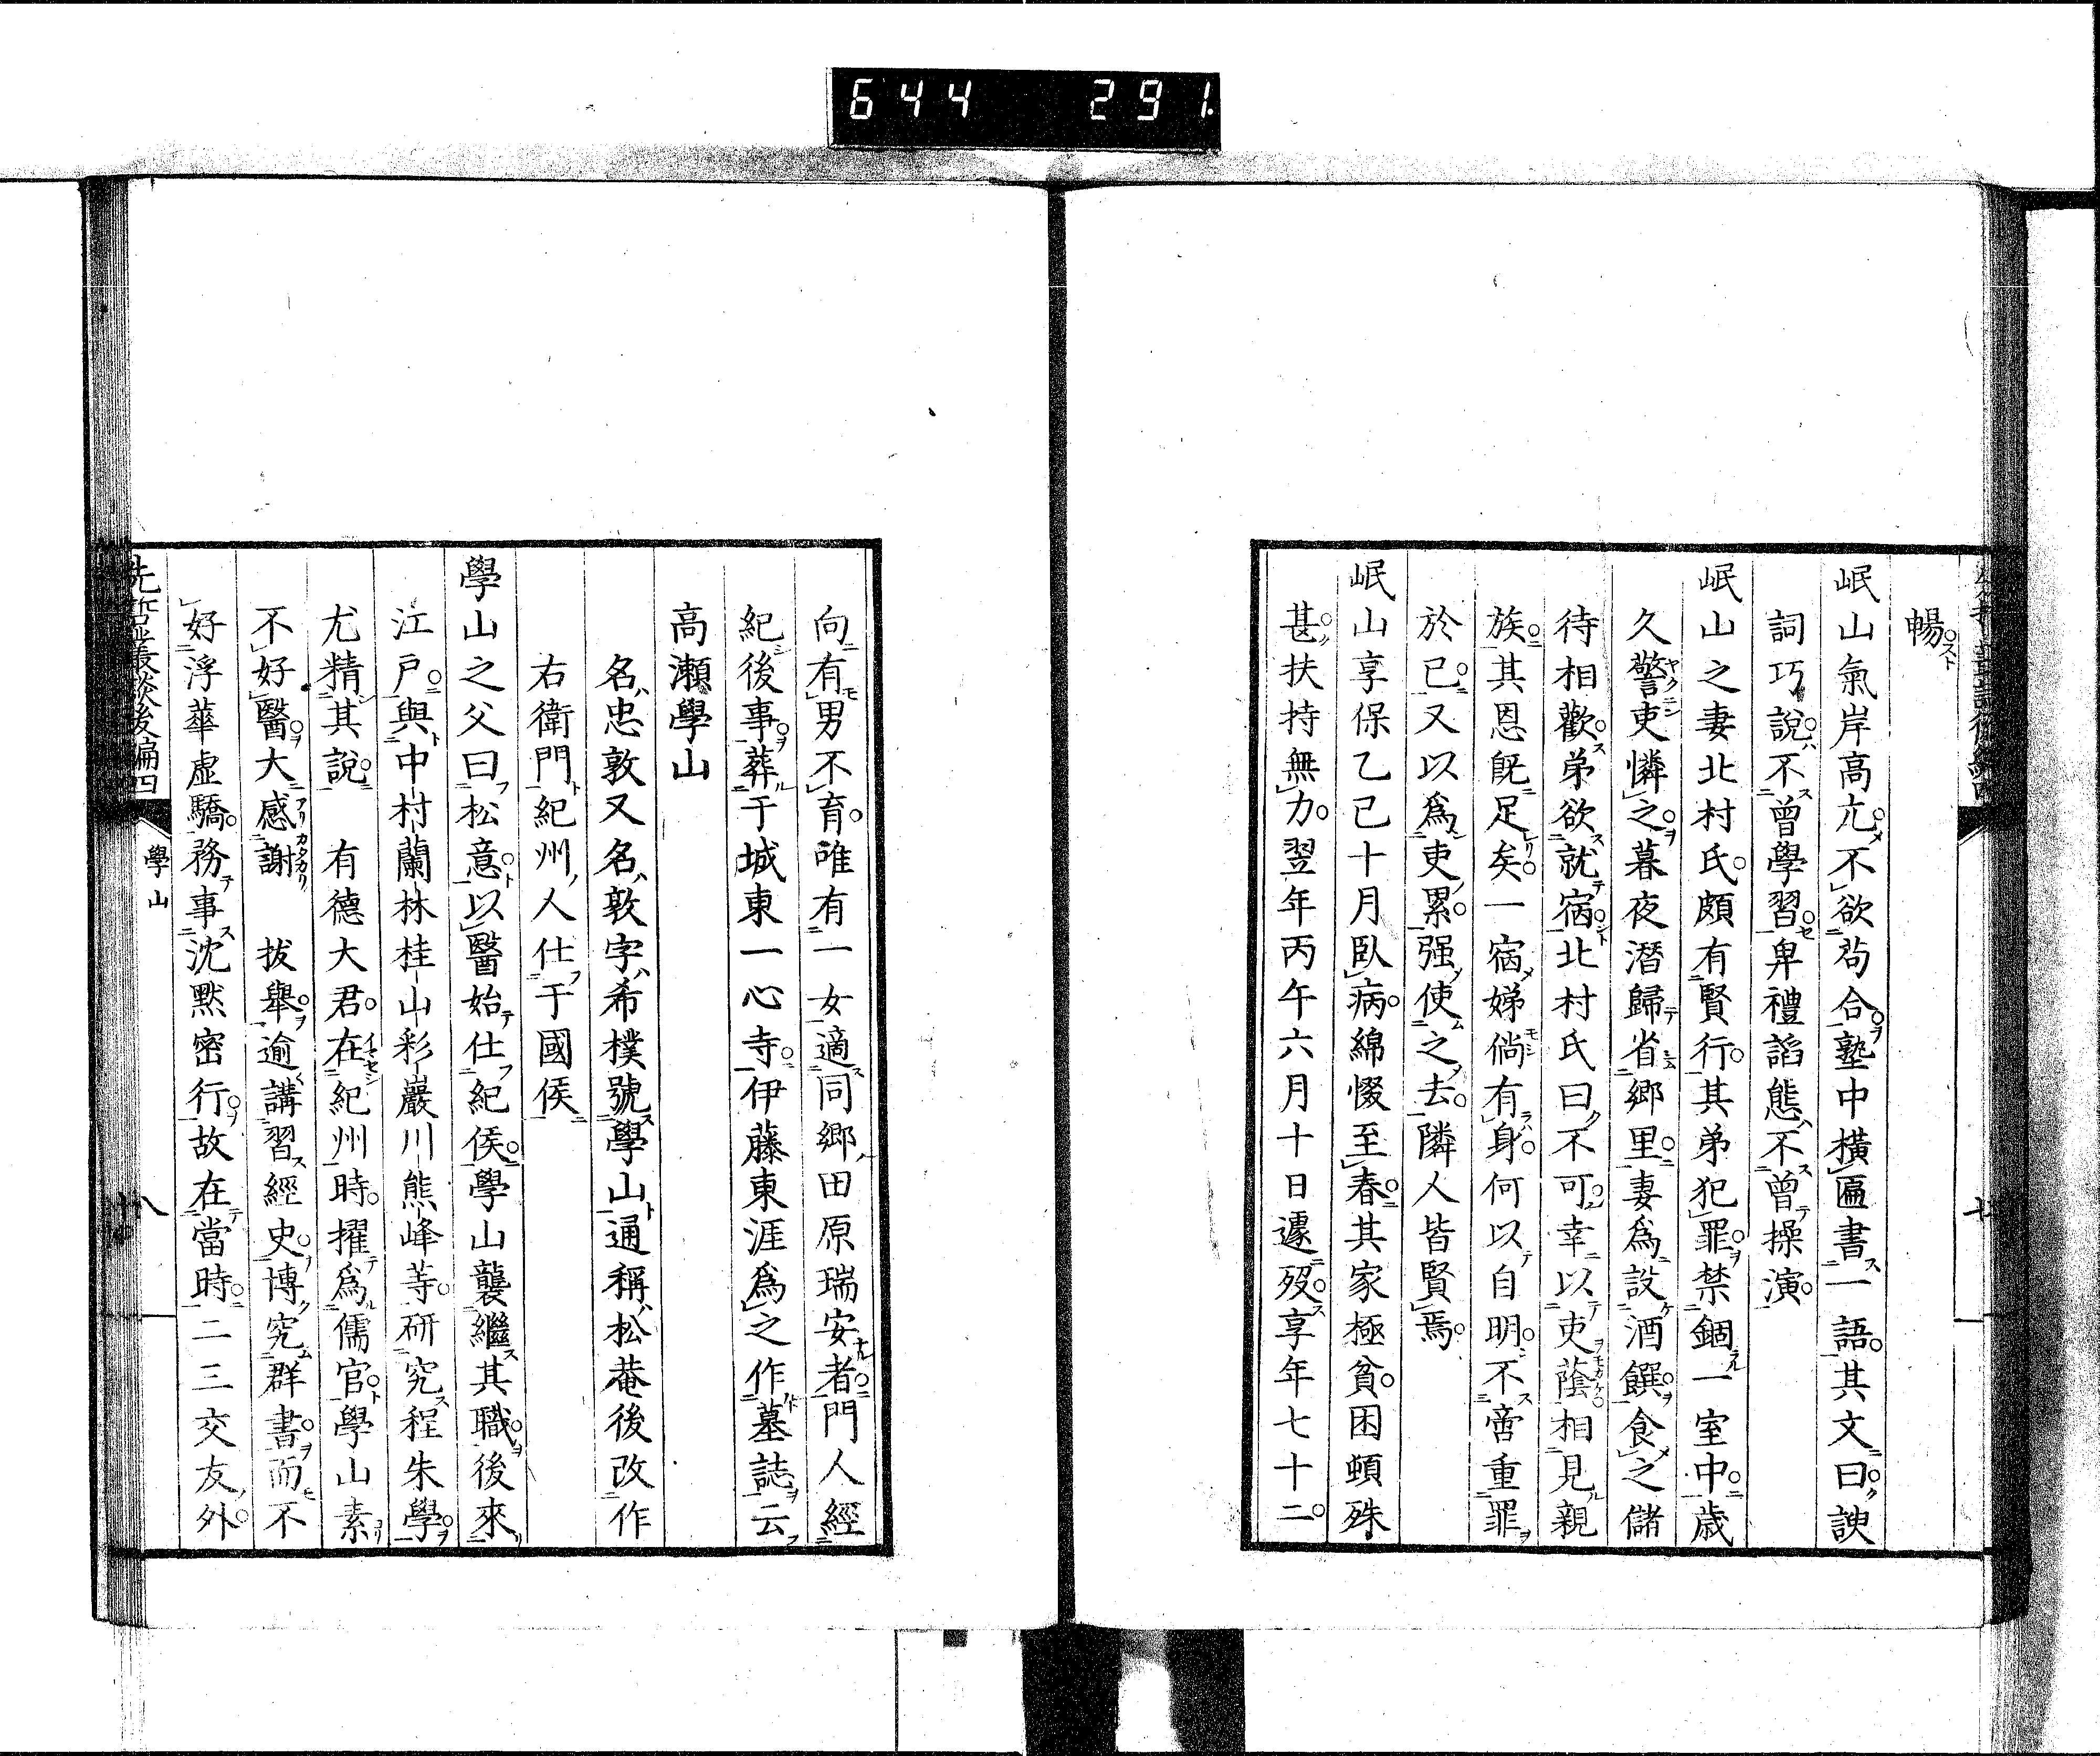 644 291
暢
岷山氣岸高亢不欲苟合塾中橫匾書一語其文曰諛
詞巧說不曾學習卑禮諂態不曾操演
岷山之妻北村氏頗有賢行其弟犯罪禁錮一室中歲
久警吏憐之暮夜潛歸省鄉里妻爲設酒饌食之儲
待相歡弟欲就宿北村氏曰不可幸以吏蔭相見親
族其恩既足矣一宿娣倘有身何以自明不啻重罪
於已又以爲吏累强使之去隣人皆賢焉
岷山享保乙巳十月臥病綿惙至春其家極貧困頓殊
甚扶持無力翌年丙午六月十日遽歿享年七十二
向有男不育唯有一女適同鄉田原瑞安者門人經
紀後事葬于城東一心寺伊藤東涯爲之作墓誌云
高瀨學山
名忠敦又名敦字希樸號學山通稱松菴後改作
右衛門紀州人仕于國侯
學山之父曰松意以醫始仕紀侯學山襲繼其職後來
江戶與中村蘭林桂山彩巖川熊峰等研究程朱學
尤精其說　有德大君在紀州時擢爲儒官學山素
不好醫大感謝　拔舉逾講習經史博究群書而不
好浮華虛驕務事沈默密行故在當時二三交友外
先哲叢談後編四
學山
八